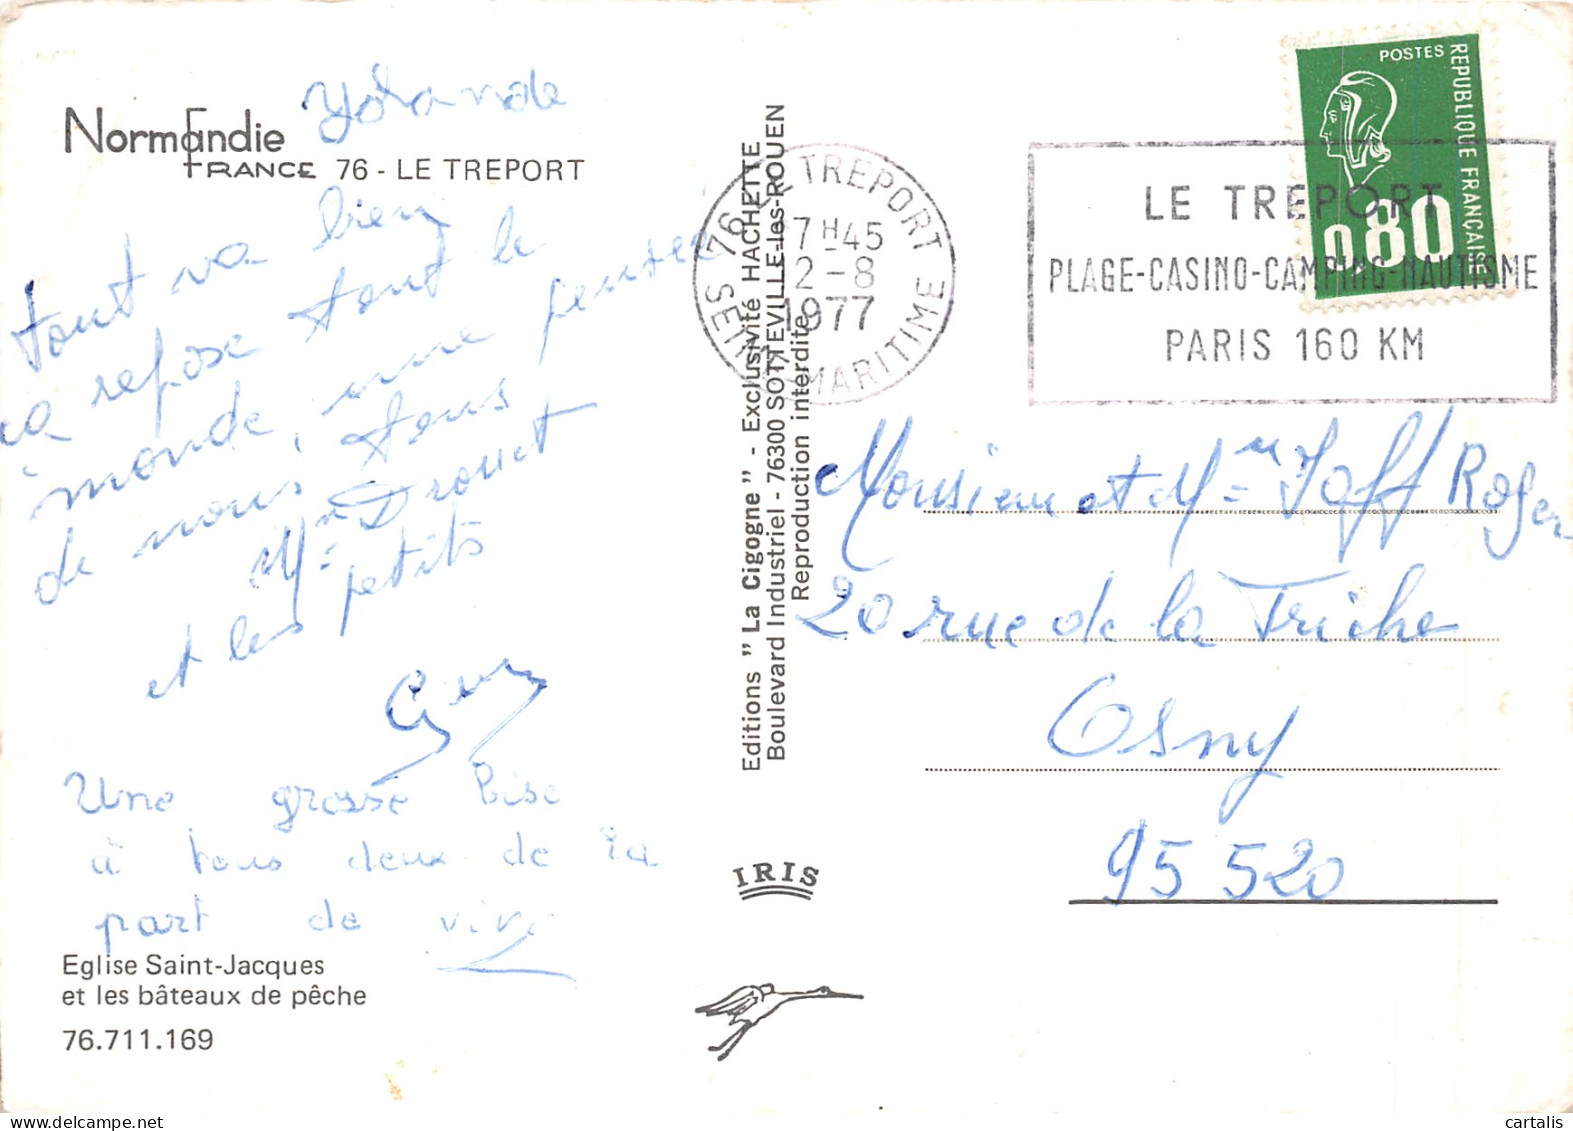 Yolande
Normandie
FRANCE 76 - LE TREPORT
tout va bien
ça repose tout le
monde, une pensée
de nous tous
Mme Drouet
et les petits
Guy
Une grosse bise
à tous deux de la
part de
Eglise Saint-Jacques
et les bâteaux de pêche
76.711.169
Editions " La Cigogne " - Exclusivité HACHETTE
Boulevard Industriel - 76300 SOTTEVILLE-les-ROUEN
Reproduction interdite
IRIS
76 LE TREPORT
17H45
2-8
1977
SEINE MARITIME
LE TREPORT
PLAGE-CASINO-CAMPING-NAUTISME
PARIS 160 KM
POSTES
REPUBLIQUE FRANÇAISE
0,80
Monsieur et Mme Joff Roger
20 rue de la Friche
Osny
95520
© cartalis